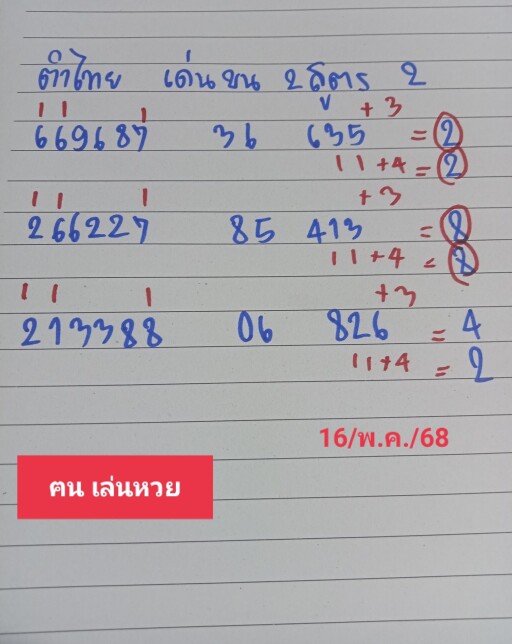 ตำไทย เด่นชน 2 สูตร 2
1 1 1 +3
669687 36 635 = 2
11+4 = 2
1 1 1 +3
266227 85 413 = 8
11+4 = 8
1 1 1 +3
213388 06 826 = 4
11+4 = 2
16/พ.ค./68
ฅน เล่นหวย